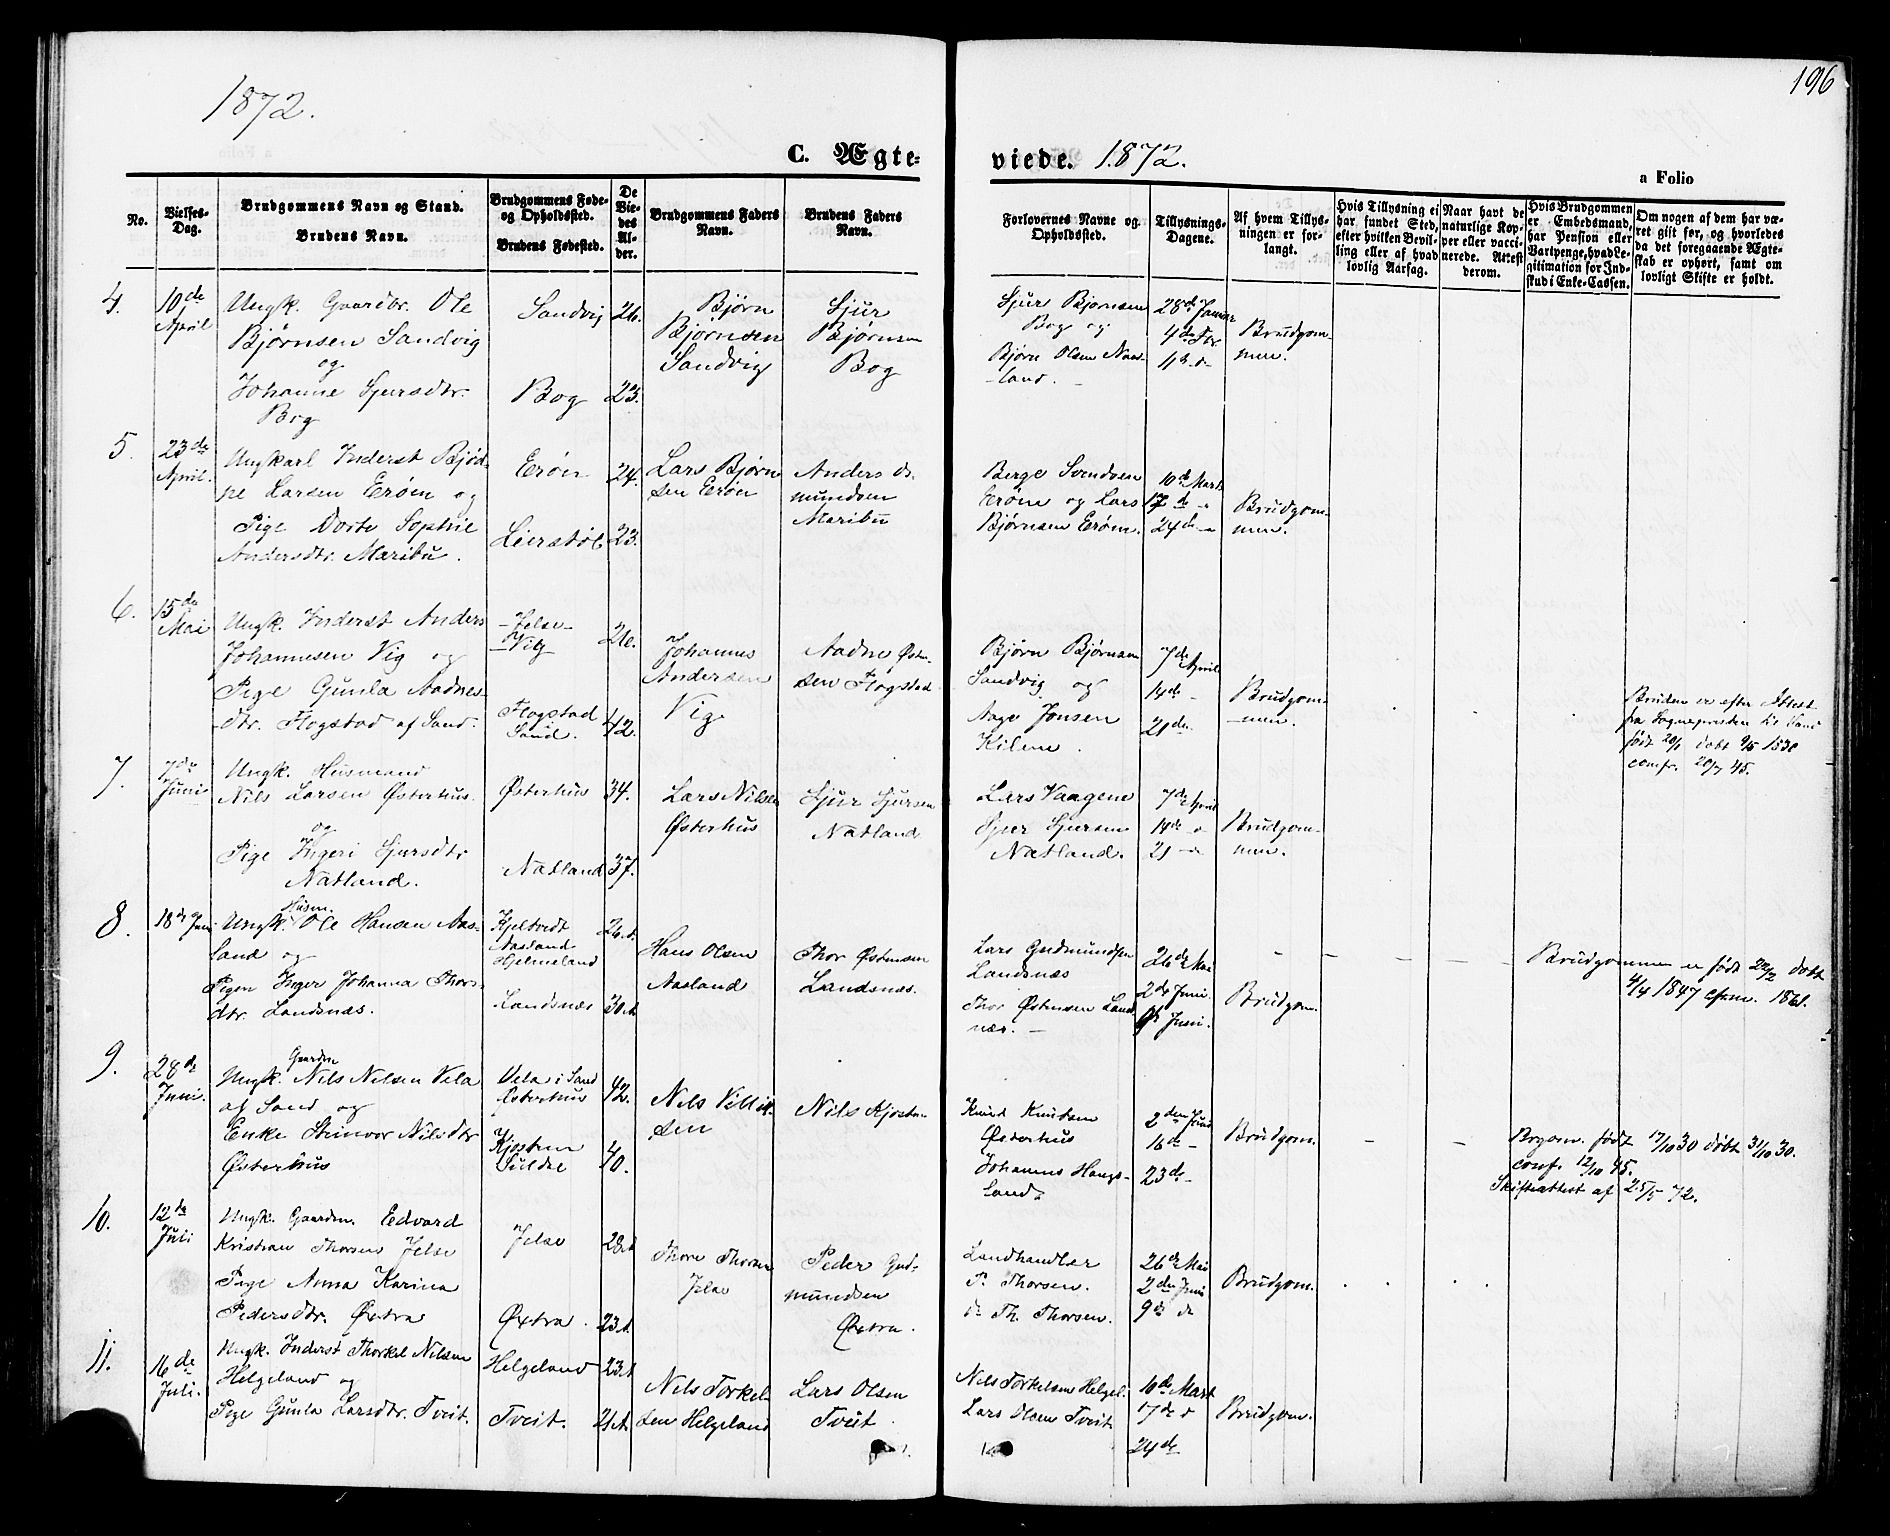 1872.
C. Ægte-
No.
Vielses-
Dag.
Brudgommens Navn og Stand.
Brudens Navn.
Brudgommens Føde-
og Opholdssted.
Brudens Fødested.
De
Vie-
des
Al-
der.
Brudgommens Faders
Navn.
Brudens Faders
Navn.
4.
10de
April
Ungk. Gaardbr. Ole
Bjørnsen Sandvig
og
Johanne Sjursdtr.
Bog
Sandvig
Bog
26.
23.
Bjørn
Bjørnsen
Sandvig
Sjur
Bjørnsen
Bog
5.
23de
April.
Ungkarl Inderst Bjød-
ne Larsen Erøen og
Pige Dorte Sophie
Andersdtr. Maribu.
Erøen
Leirstøl
24.
23.
Lars Bjørn
sen Erøen
Anders As-
mundsen
Maribu
6.
15de
Mai
Ungk. Inderst Anders
Johannesen Vig og
Pige Gunla Aadnes-
dtr. Flogstad af Sand.
Jelse
Vig
Flogstad
Sand.
26.
42.
Johannes
Andersen
Vig
Aadne Østen-
sen Flogstad
7.
7de
Juni
Ungk. Husmand
Nils Larsen Østerhus
og
Pige Ingeri Sjursdtr
Natland.
Østerhus
Natland
34.
37.
Lars Nilsen
Østerhus
Sjur Sjursen
Natland
8.
18de Juni
Husm.
Ungk. Ole Hansen Aas-
land og
Pigen Inger Johanna Thors-
dtr. Landsnæs.
Kjeltvedt
Aasland
Hjelmeland
Landsnæs
Hans Olsen
Aasland
Thor Østensen
Landsnæs.
9.
28de
Juni.
Gaardm
Ungk. Nils Nilsen Vela
af Sand og
Enke Steinvor Nilsdtr
Østerhus
Vela i Sand
Østerhus
Suldal
42.
40.
Nils
sen
Nils
10.
12te
Juli
Ungk. Gaardm. Edvard
Kristian Thorsen Jelse
Pige Anna Karina
Pedersdtr. Øxtra
Jelse
Øxtra.
Thore Thorsen
Jelse
Peder Gud-
mundsen
Øxtra.
11.
16de
Juli.
Ungk. Inderst Thorkel Nilsen
Helgeland og
Pige Gunla Larsdtr. Tveit.
Helgeland
Tveit.
Nils Torkel-
sen Helgeland
Lars Olsen
Tveit
196
viede. 1872.
a Folio
Forlovernes Navne og
Opholdssted.
Tillysnings-
Dagene.
Af hvem Tillys-
ningen er for-
langt.
Hvis Tillysning ei
har fundet Sted,
efter hvilken Bevil-
ling eller af hvad
lovlig Aarsag.
Naar havt de
naturlige Kop-
per eller vacci-
nerede. Attest
derom.
Hvis Brudgommen
er Embedsmand,
har Pension eller
Vartpenge, hvad Le-
gitimation for Ind-
skud i Enke-Cassen.
Om nogen af dem har væ-
ret gift før, og hvorledes
da det foregaaende Ægte-
skab er ophørt, samt om
lovligt Skifte er holdt.
Sjur Bjørnsen
Bog og
Bjørn Olsen Naas-
land.
28de Januar
4de Febr
Brudgom-
men.
Berge Svendsen
Erøen og Lars
Bjørnsen Erøen.
10de Marts
17de
24de
Brudgom-
men.
Bjørn Bjørnsen
Sandvig og
Aage Jonsen
Kilene.
7de April
14de
21de
Brudgom-
men.
Bruden er efter Attest
fra Sognepræsten til Sand
født 20/1 døbt 9/5 1830
comfr. 20/7 45.
Lars Vaagene
Sjur Sjursen
Natland.
7de April
14de
21
Brudgom-
men.
Lars Gudmundsen
Landsnæs
Thor Østensen Land
næs.
26de Mai
2de Juni
9de Juni.
Brudgom.
Brudgommen er født døbt
4/4 1847 cfrm. 1861.
Knud Knudsen
Østerhus
Johannes Haugs-
land.
2den Juni
16de
23de
Brudgom.
Brgom. født 17/10 30 døbt 31/10 30.
conf. 12/10 45.
Skifteattest af 25/5 72.
Landhandler
P. Thorsen.
do Th. Thorsen.
26de Mai
2den Juni
9de do
Brudgom.
Nils Torkelsen Helgel.
Lars Olsen Tveit
10de Mart
17de
24de
Brudgom.